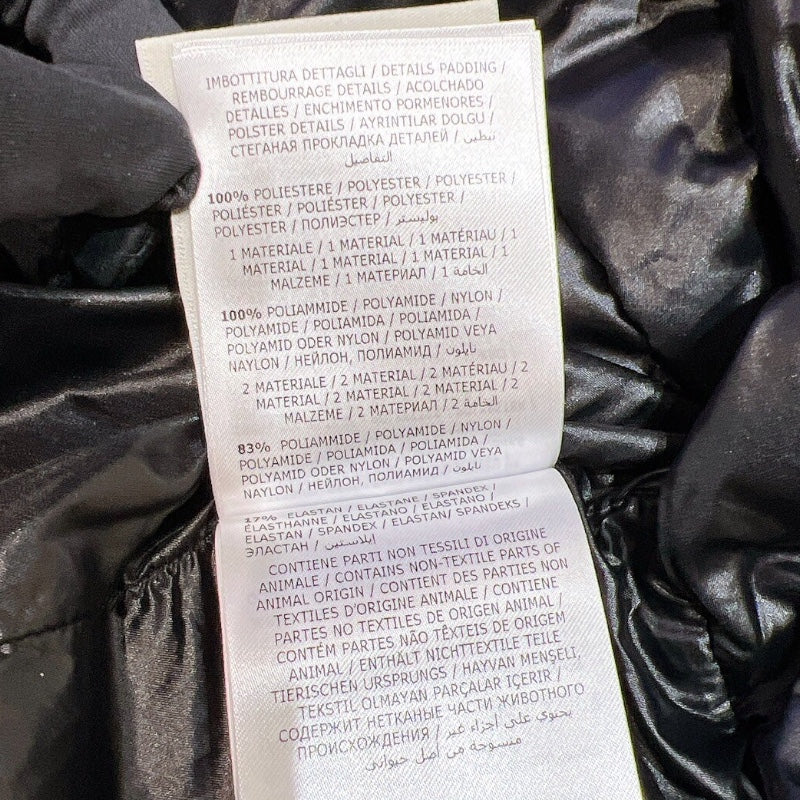 IMBOTTITURA DETTAGLI / DETAILS PADDING /
REMBOURRAGE DETAILS / ACOLCHADO
DETALLES / ENCHIMENTO PORMENORES /
POLSTER DETAILS / AYRINTILAR DOLGU /
СТЕГАНАЯ ПРОКЛАДКА ДЕТАЛЕЙ / تبطين
التفاصيل
100% POLIESTERE / POLYESTER / POLYESTER /
POLIÉSTER / POLIÉSTER / POLYESTER /
POLYESTER / ПОЛИЭСТЕР / بوليستر
1 MATERIALE / 1 MATERIAL / 1 MATÉRIAU / 1
MATERIAL / 1 MATERIAL / 1 MATERIAL / 1
MALZEME / 1 МАТЕРИАЛ / 1 الخامة
100% POLIAMMIDE / POLYAMIDE / NYLON /
POLYAMIDE / POLIAMIDA / POLIAMIDA /
POLYAMID ODER NYLON / POLYAMID VEYA
NAYLON / НЕЙЛОН, ПОЛИАМИД / نايلون
2 MATERIALE / 2 MATERIAL / 2 MATÉRIAU / 2
MATERIAL / 2 MATERIAL / 2 MATERIAL / 2
MALZEME / 2 МАТЕРИАЛ / 2 الخامة
83% POLIAMMIDE / POLYAMIDE / NYLON /
POLYAMIDE / POLIAMIDA / POLIAMIDA /
POLYAMID ODER NYLON / POLYAMID VEYA
NAYLON / НЕЙЛОН, ПОЛИАМИД / نايلون
17% ELASTAN / ELASTANE / SPANDEX /
ÉLASTHANNE / ELASTANO / ELASTANO /
ELASTAN / SPANDEX / ELASTAN/ SPANDEKS /
ЭЛАСТАН / ايلاستين
CONTIENE PARTI NON TESSILI DI ORIGINE
ANIMALE / CONTAINS NON-TEXTILE PARTS OF
ANIMAL ORIGIN / CONTIENT DES PARTIES NON
TEXTILES D'ORIGINE ANIMALE / CONTIENE
PARTES NO TEXTILES DE ORIGEN ANIMAL /
CONTÉM PARTES NÃO TÊXTEIS DE ORIGEM
ANIMAL / ENTHÄLT NICHTTEXTILE TEILE
TIERISCHEN URSPRUNGS / HAYVAN MENŞELİ,
TEKSTIL OLMAYAN PARÇALAR İÇERİR /
СОДЕРЖИТ НЕТКАНЫЕ ЧАСТИ ЖИВОТНОГО
ПРОИСХОЖДЕНИЯ / يحتوي على أجزاء غير
منسوجة من أصل حيواني